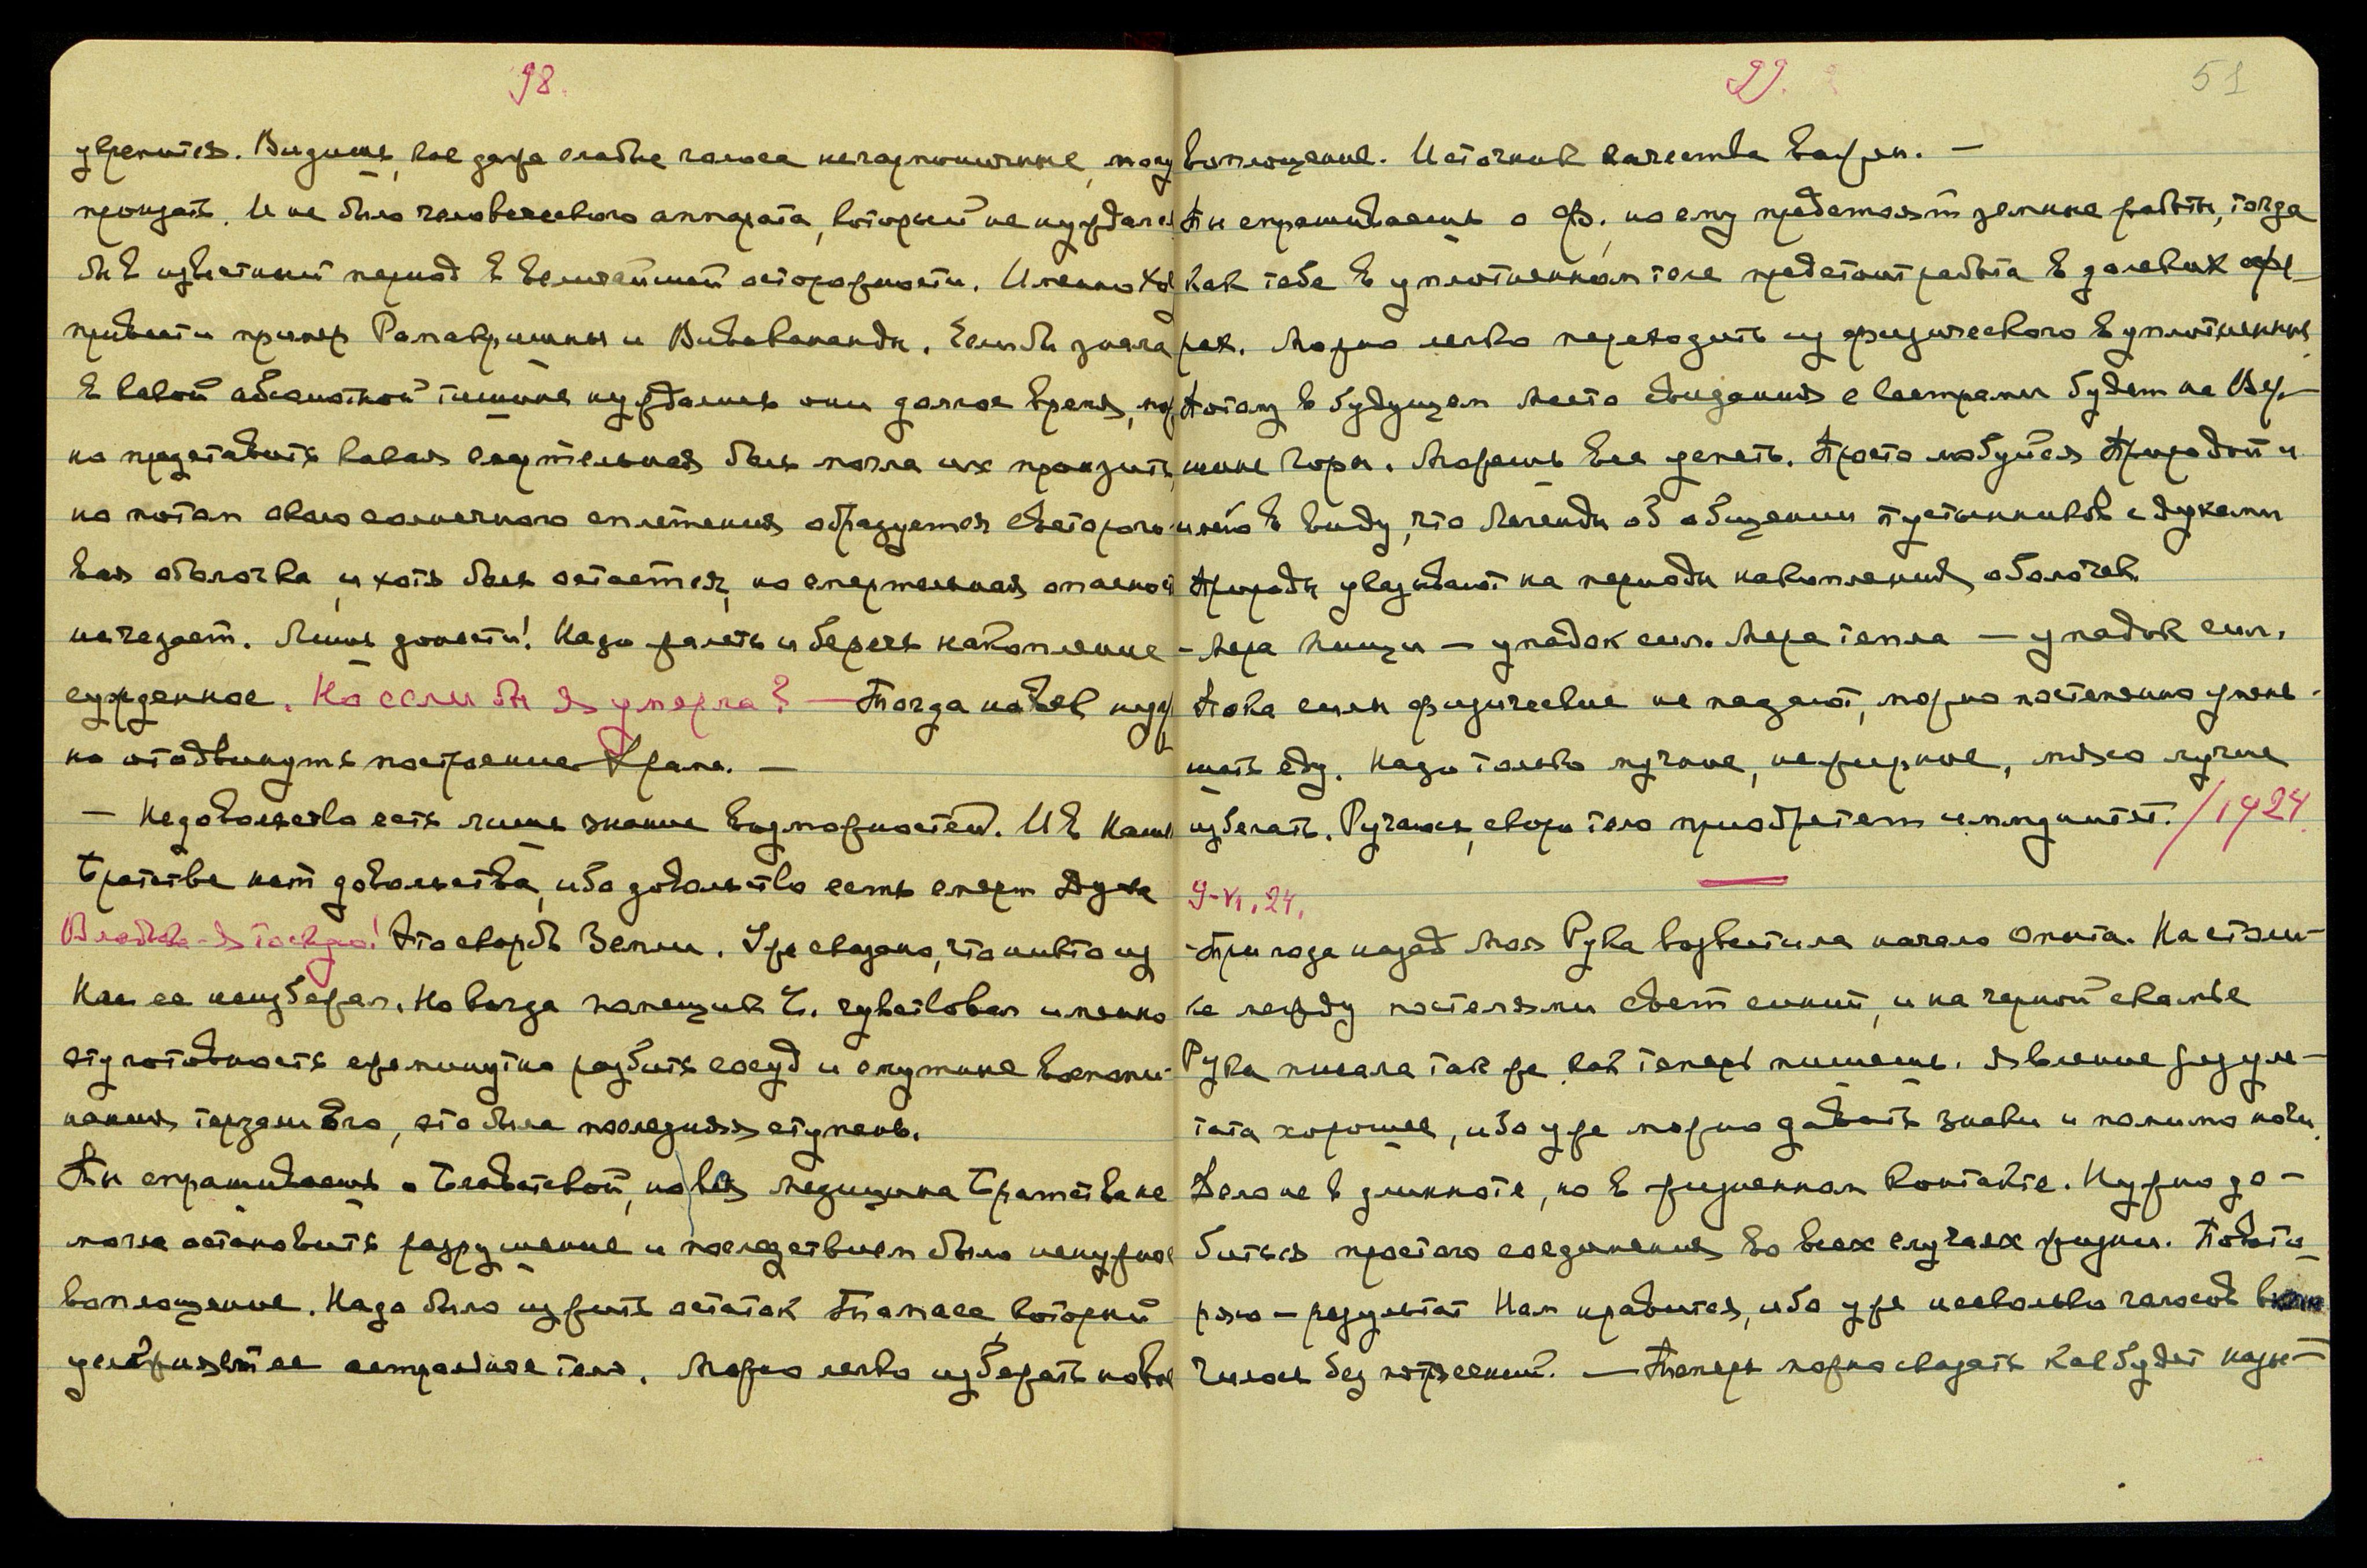 98.
укрепится. Видишь, как даже слабые голоса негармоничные могу
пронзать. И не было человеческого аппарата, который не нуждался
бы в известный период в величайшей осторожности. Именно
привести пример Рамакришны и Вивекананды. Если бы знала
в какой абсолютной тишине нуждались они долгое время, мож
но представить какая смертельная боль могла их пронзить,
но потом около солнечного сплетения образуется светоро
вая оболочка, и хотя боль остается, но смертельная опасност
исчезает. Лишь донести! Надо желать и беречь накопление
сужденное. Но если бы я умерла? — Тогда на век нуж
но отодвинуть построение Храма. —
— Недовольство есть лишь знание возможностей. И в Наше
Братстве нет довольства, ибо довольство есть смерть Духа
Владыка - я тоскую! Это скорбь Земли. Уже сказано, что никто из
Нас ее не избежал. Но когда помещик Ч. чувствовал именно
эту готовность ежеминутно разбить сосуд и смутные воспоми-
нания терзали его, это была последняя ступень.
Ты спрашиваешь о Блаватской, но вся медицина Братства не
могла остановить разрушение и последствием было ненужное
воплощение. Надо было изжить остаток Тамаса, который
ее астральное тело. Можно легко избежать новое
99.
51
воплощение. Источник качества важен. —
Ты спрашиваешь о Ф., но ему предстоят земные работы, тогда
как тебе в уплотненном теле предстоит работа в далеких сфе-
рах. Можно легко переходить из физического в уплотненные,
потому в будущем место свидания с сестрами будет не Вер-
шине Горы. Можешь все успеть. Просто любуйся Природой и
имей в виду, что легенды об общении пустынников с духами
Природы указывают на периоды накопления оболочек
- Мера пищи — упадок сил. Мера тепла — упадок сил.
Пока силы физические не падают, можно постепенно умень-
шать еду. Надо только мучное, нежирное, мясо лучше
избегать. Ручаюсь, скоро тело приобретет иммунитет. / 1924.
9-VI.24.
- Три года назад Моя Рука возвестила начало опыта. На стои-
ке между постелями свет синий, и на черной скамье
Рука писала так же как теперь пишешь. Явление резуль-
тата хорошее, ибо уже можно давать знаки и помимо ночи.
Дело не в длинноте, но в жизненном контакте. Нужно до-
биться простого соединения во всех случаях жизни. Повто-
ряю — результат Нам нравится, ибо уже несколько голосов
чилось без потрясений. — Теперь можно сказать как будет назы-